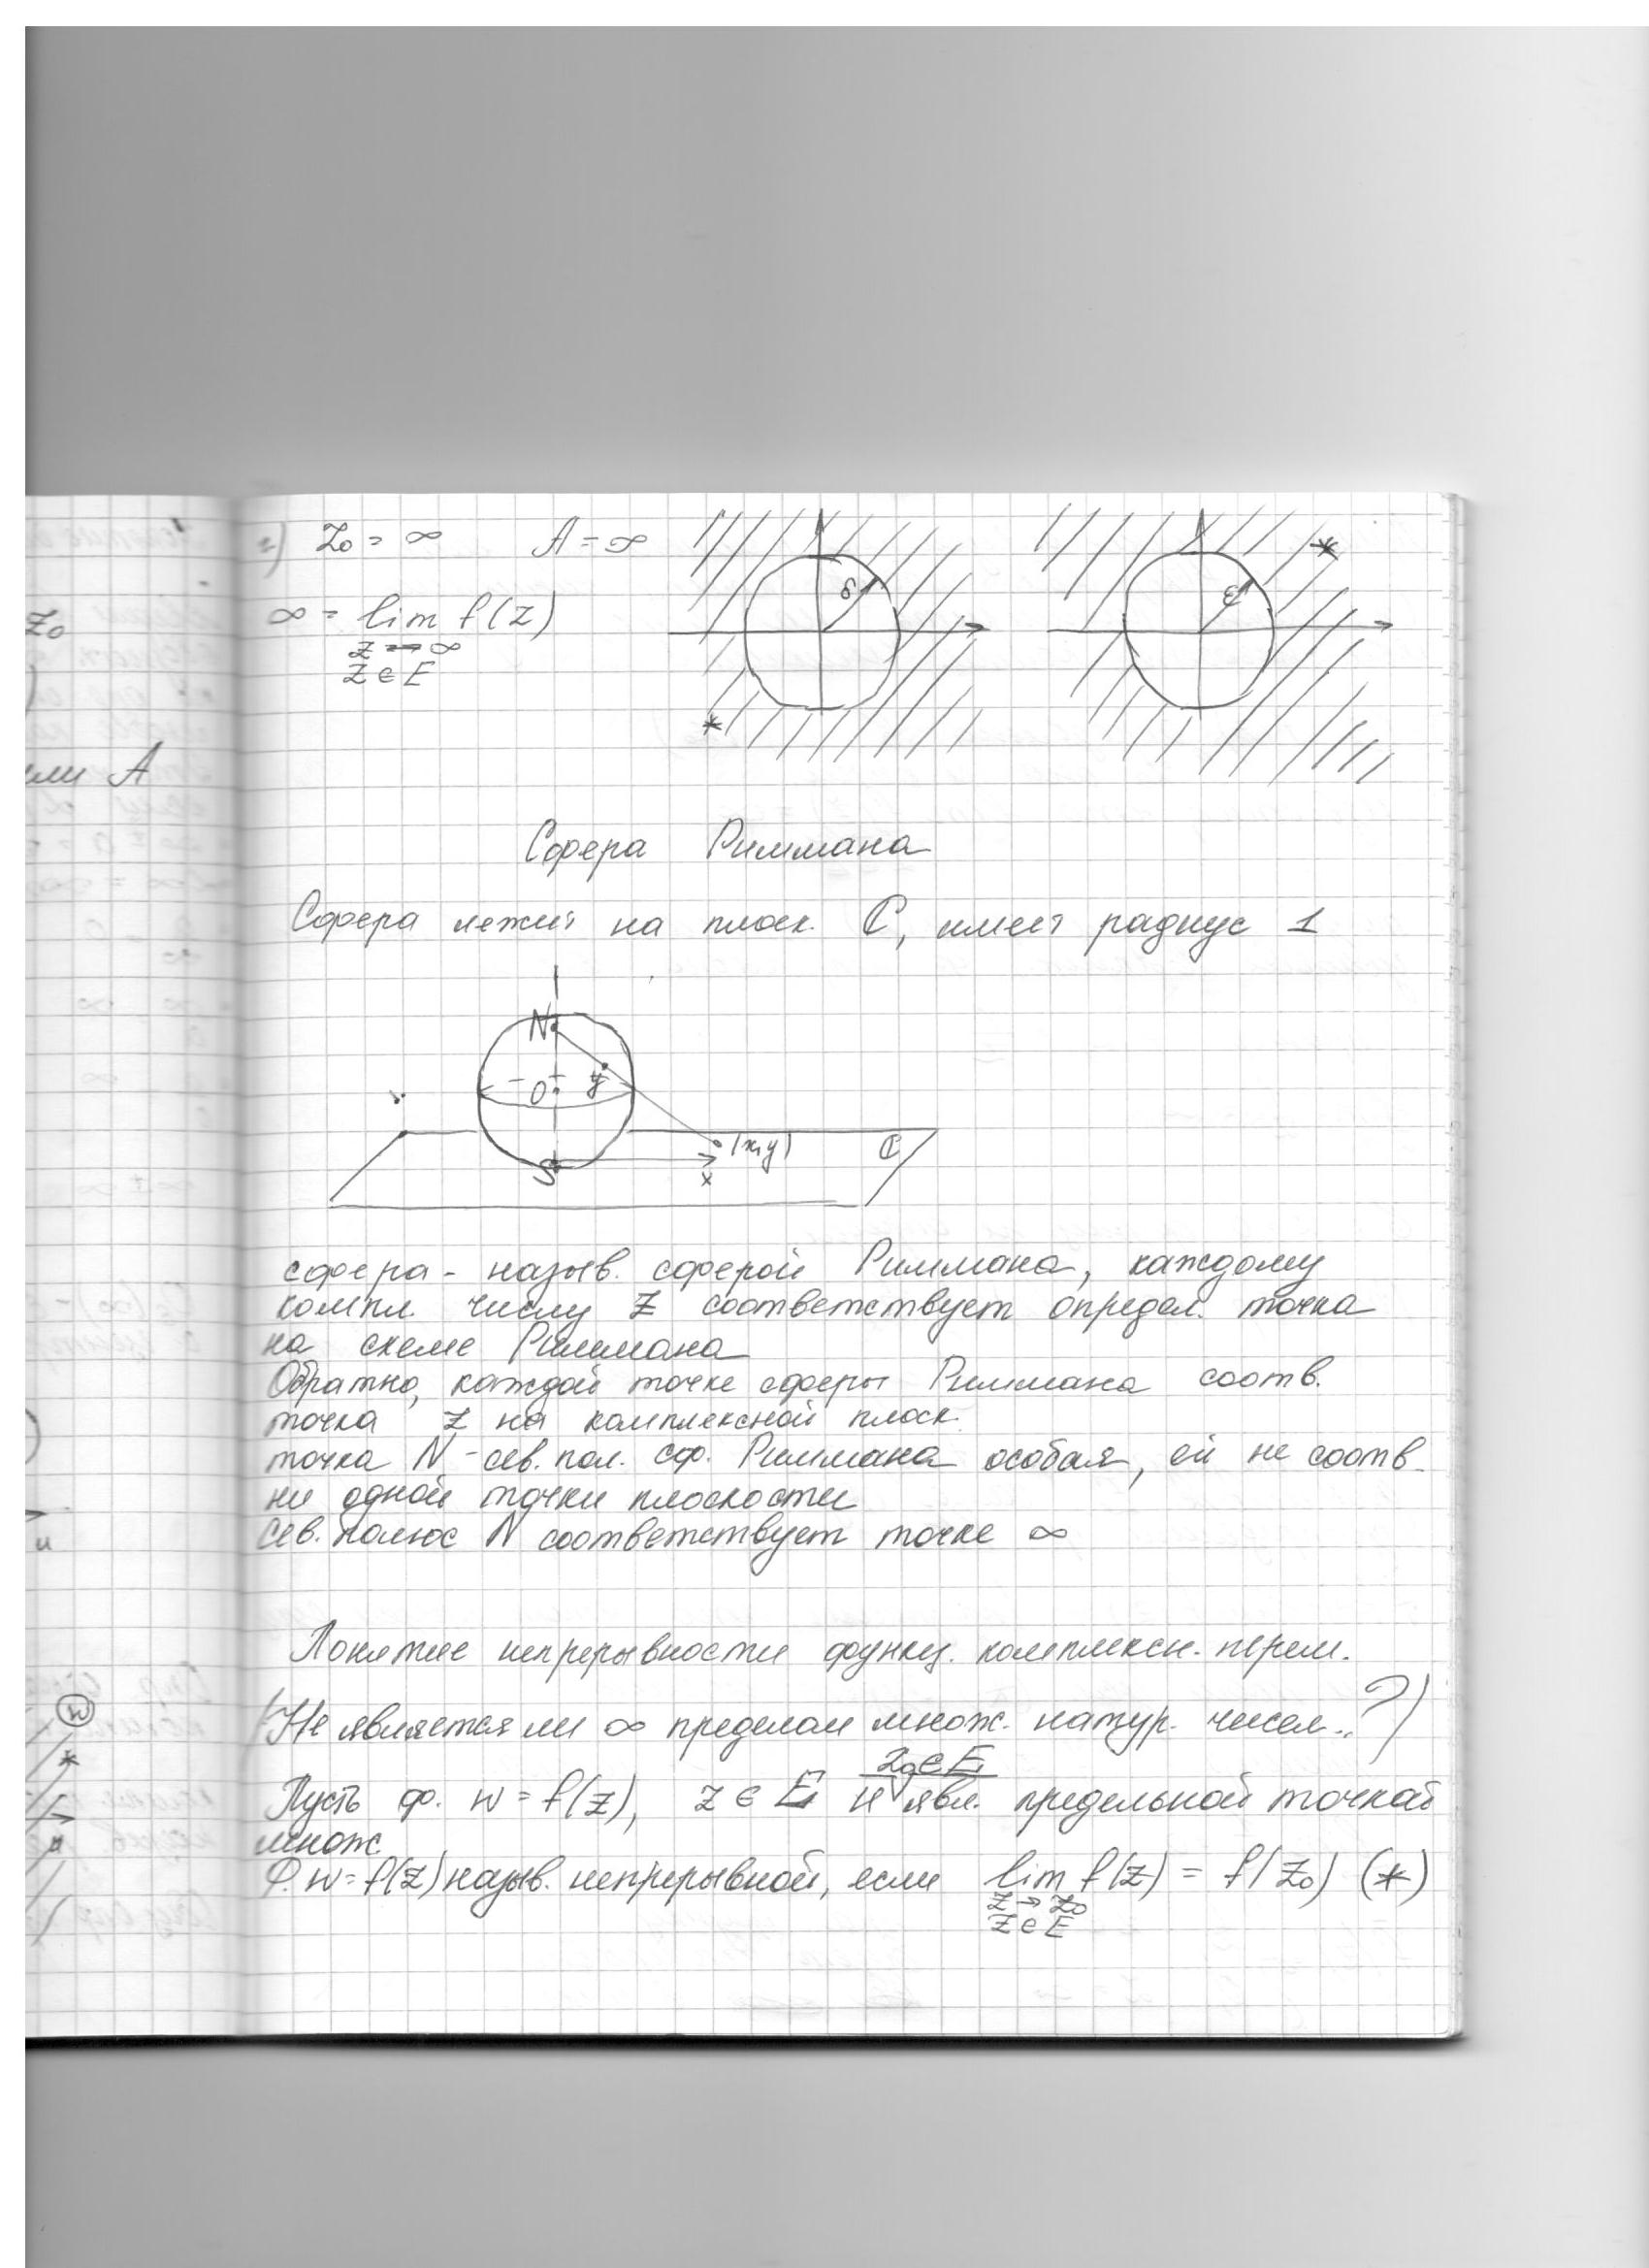 г) Z₀ = ∞ A = ∞
∞ = lim f(z)
z → ∞
z ∈ E
δ
ε
*
*
Z₀
или A
Сфера Риммана
Сфера лежит на плоск. ℂ, имеет радиус 1
N
O
S
(x, y)
x
ℂ
сфера - назыв. сферой Риммана, каждому
компл. числу Z соответствует определ. точка
на схеме Риммана
Обратно, каждой точке сферы Риммана соотв.
точка Z на комплексной плоск.
точка N - сев. пол. сф. Риммана особая, ей не соотв.
ни одной точки плоскости
Сев. полюс N соответствует точке ∞
u
Понятие непрерывности функц. комплексн. перем.
(Не является ли ∞ пределом множ. натур. чисел..?)
w
*
z₀ ∈ E
Пусть ф. w = f(z), z ∈ E и явл. предельной точкой
множ.
Ф. w = f(z) назыв. непрерывной, если lim f(z) = f(z₀) (*)
z → z₀
z ∈ E